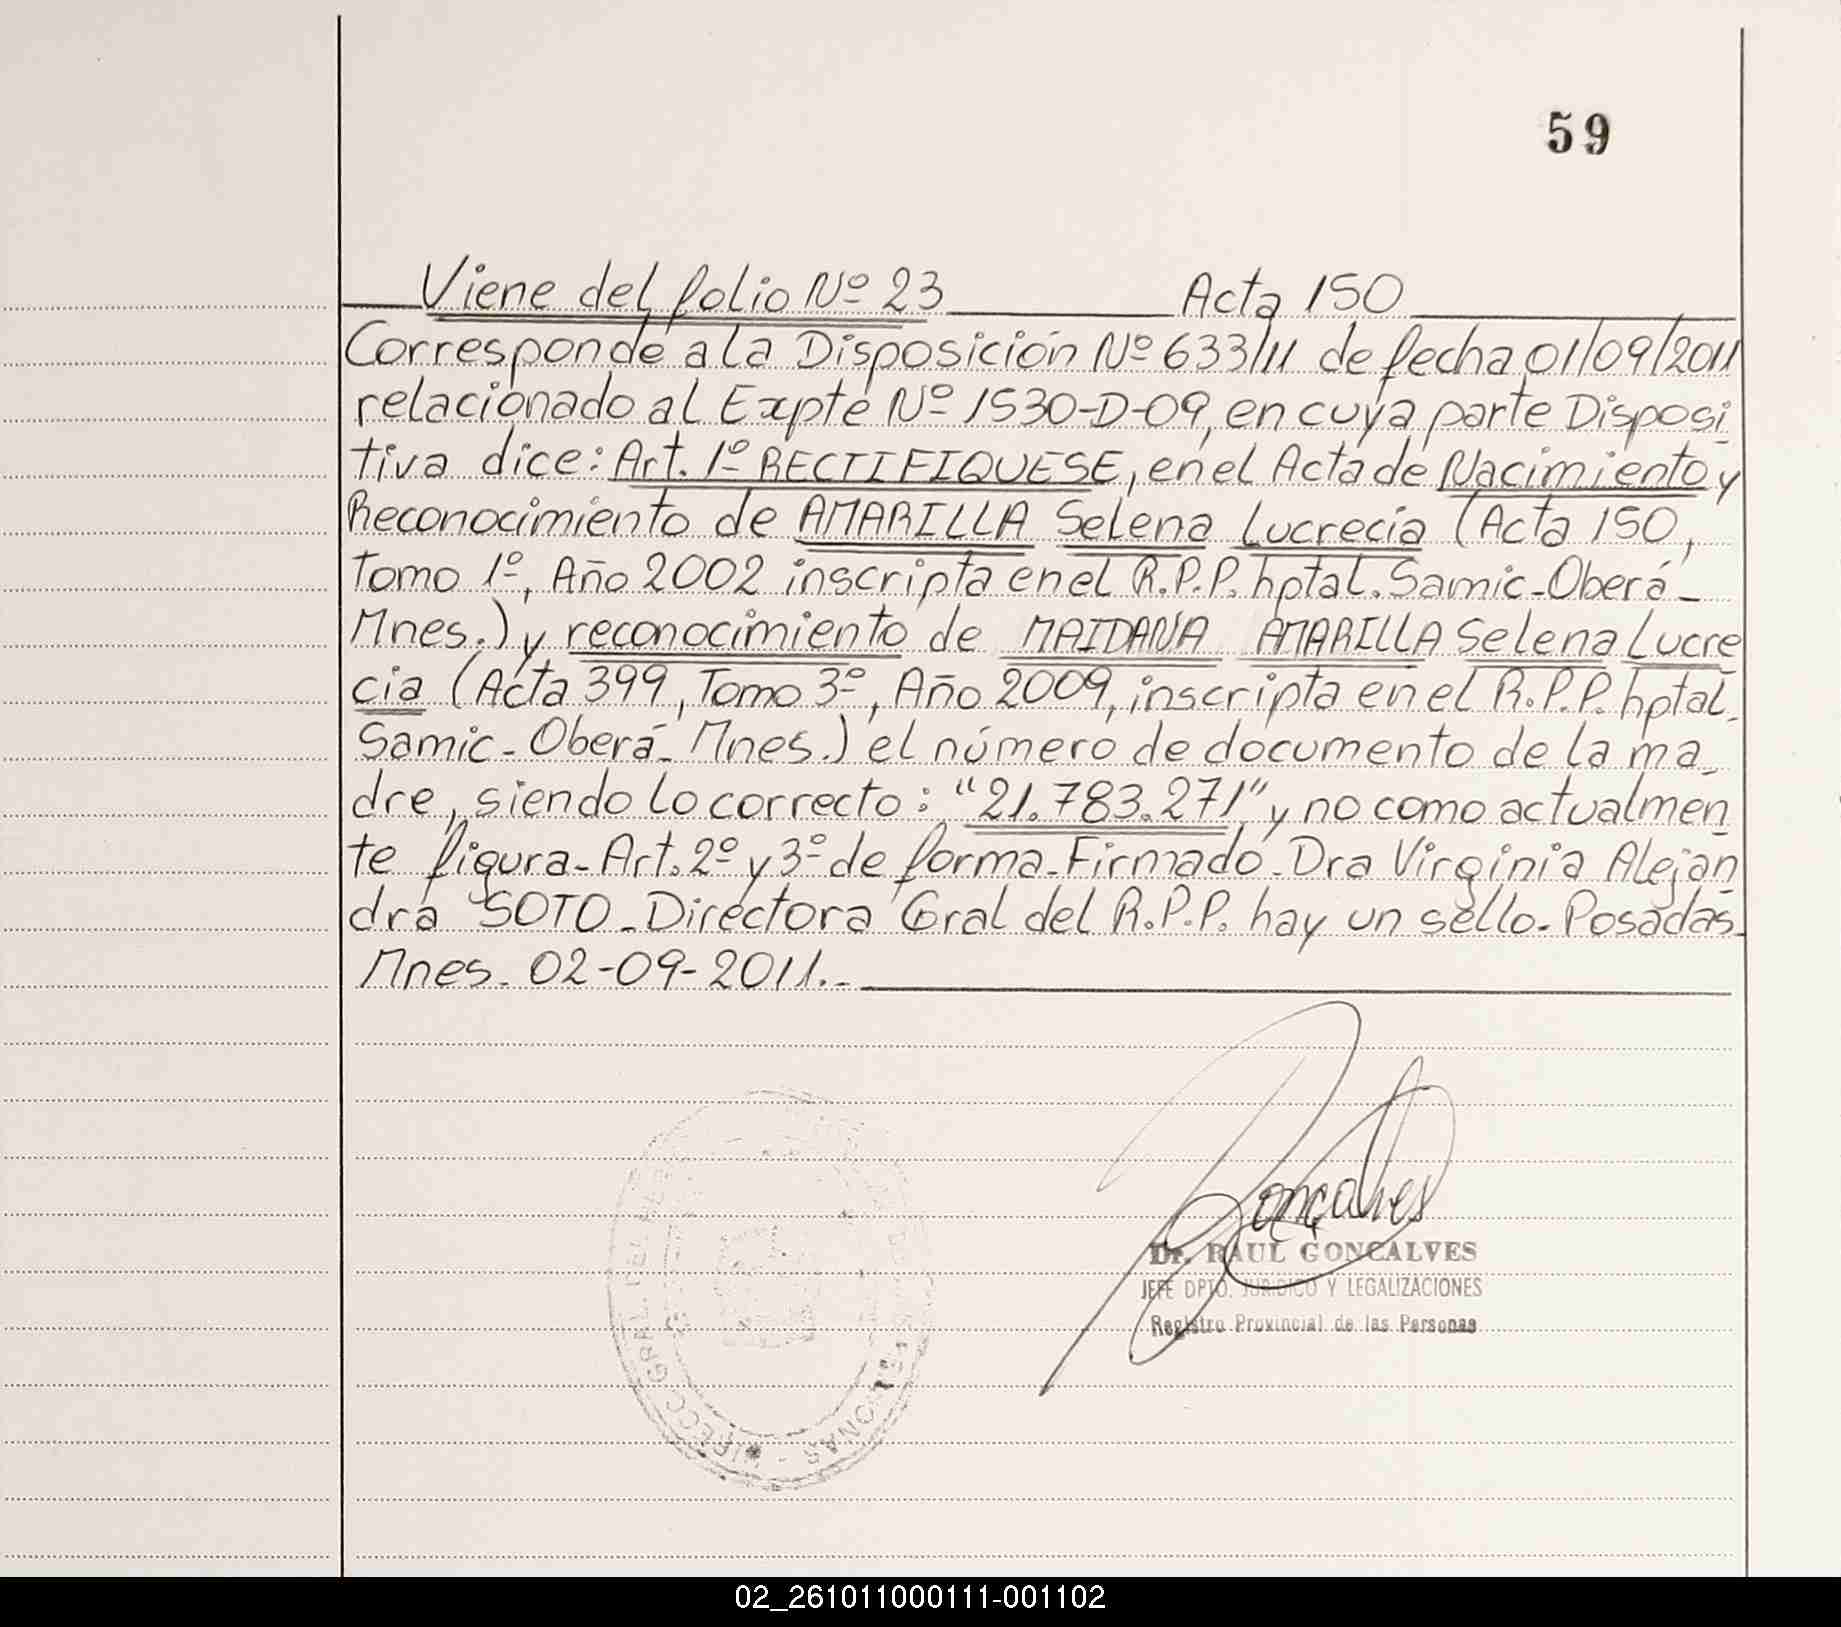 59
Viene del folio Nº 23 Acta 150
Corresponde a la Disposición Nº 633/11 de fecha 01/09/2011
relacionado al Expte Nº 1530-D-09, en cuya parte Disposi
tiva dice: Art. 1º RECTIFIQUESE, en el Acta de Nacimiento y
Reconocimiento de AMARILLA Selena Lucrecia (Acta 150,
Tomo 1º, Año 2002 inscripta en el R.P.P. hptal. Samic-Oberá-
Mnes.) y reconocimiento de MAIDANA AMARILLA Selena Lucre
cia (Acta 399, Tomo 3º, Año 2009, inscripta en el R.P.P. hptal.
Samic-Oberá-Mnes.) el número de documento de la ma-
dre, siendo lo correcto: "21.783.271" y no como actualmen
te figura-Art. 2º y 3º de forma-Firmado-Dra Virginia Alejan
dra SOTO-Directora Gral del R.P.P. hay un sello-Posadas-
Mnes. 02-09-2011.-
Goncalves
Dr. RAUL GONCALVES
JEFE DPTO. JURIDICO Y LEGALIZACIONES
Registro Provincial de las Personas
02_261011000111-001102